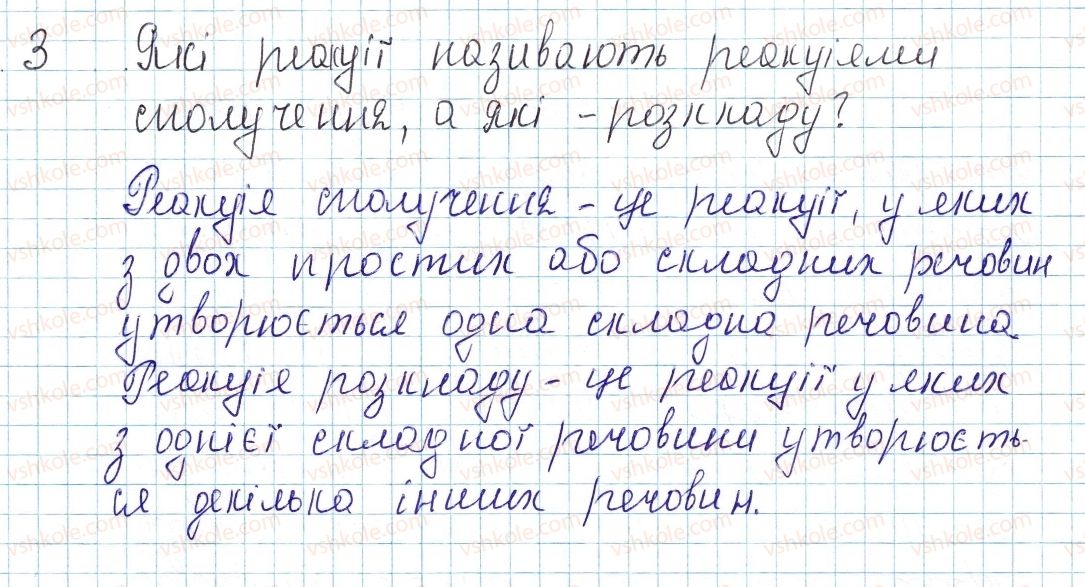 3 Які реакції називають реакціями
сполучення, а які - розкладу?
Реакція сполучення - це реакції, у яких
з двох простих або складних речовин
утворюється одна складна речовина
Реакція розкладу - це реакції у яких
з однієї складної речовини утворюєть-
ся декілька інших речовин.